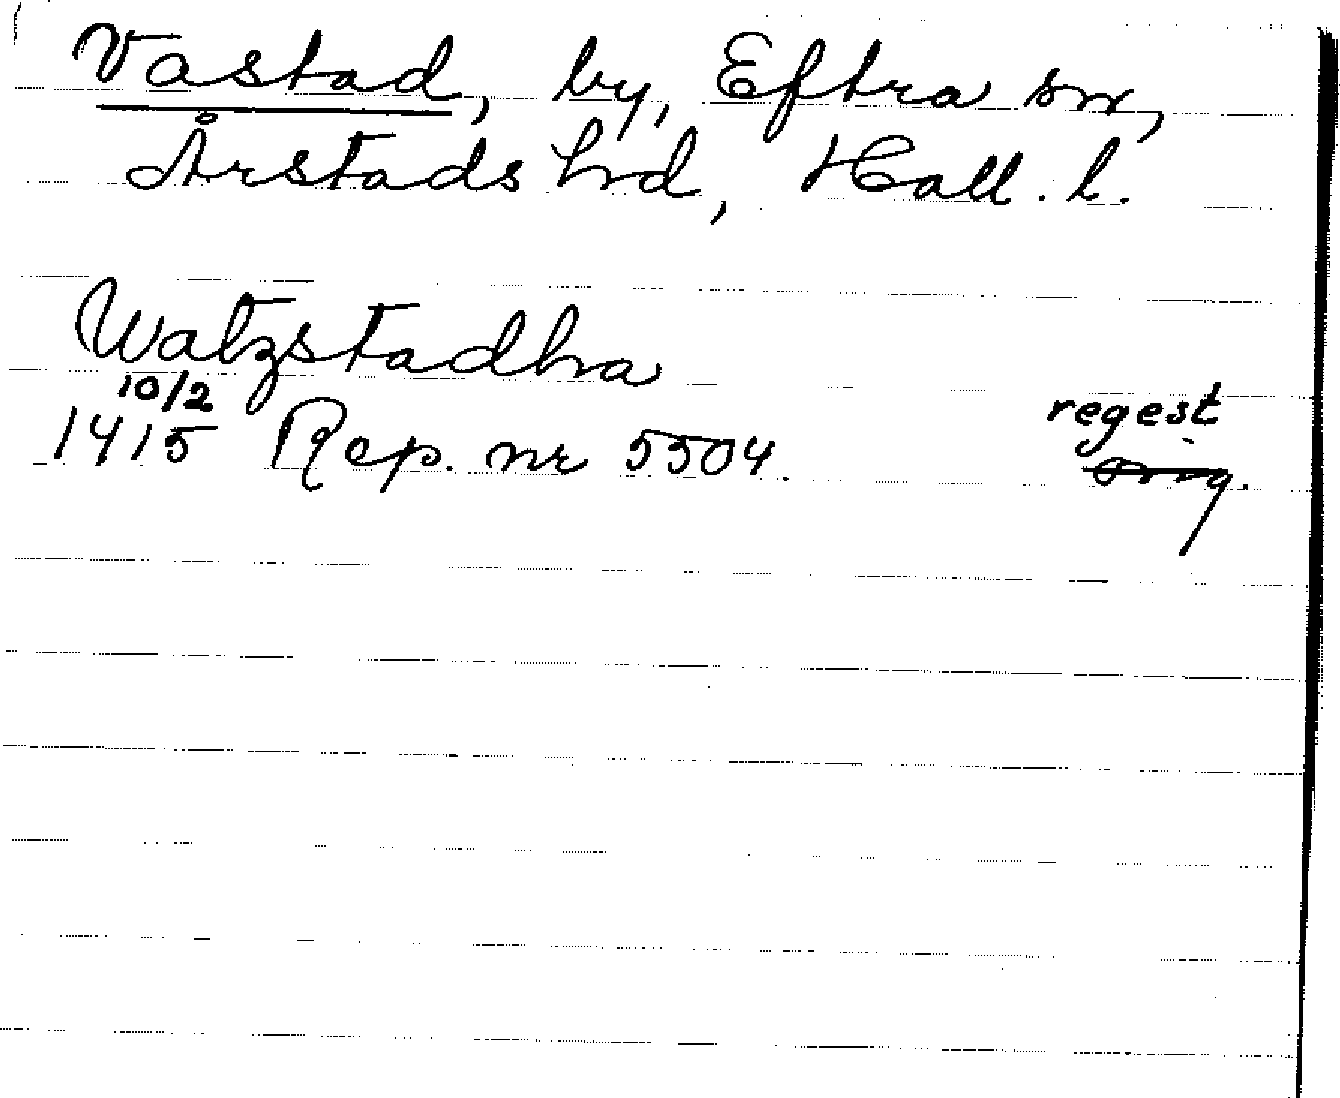 Vastad, by, Eftra sn,
Årstads hrd, Hall. l.
Watzstadha
10/2
1415 Rep. nr 5504.
regest
orig.